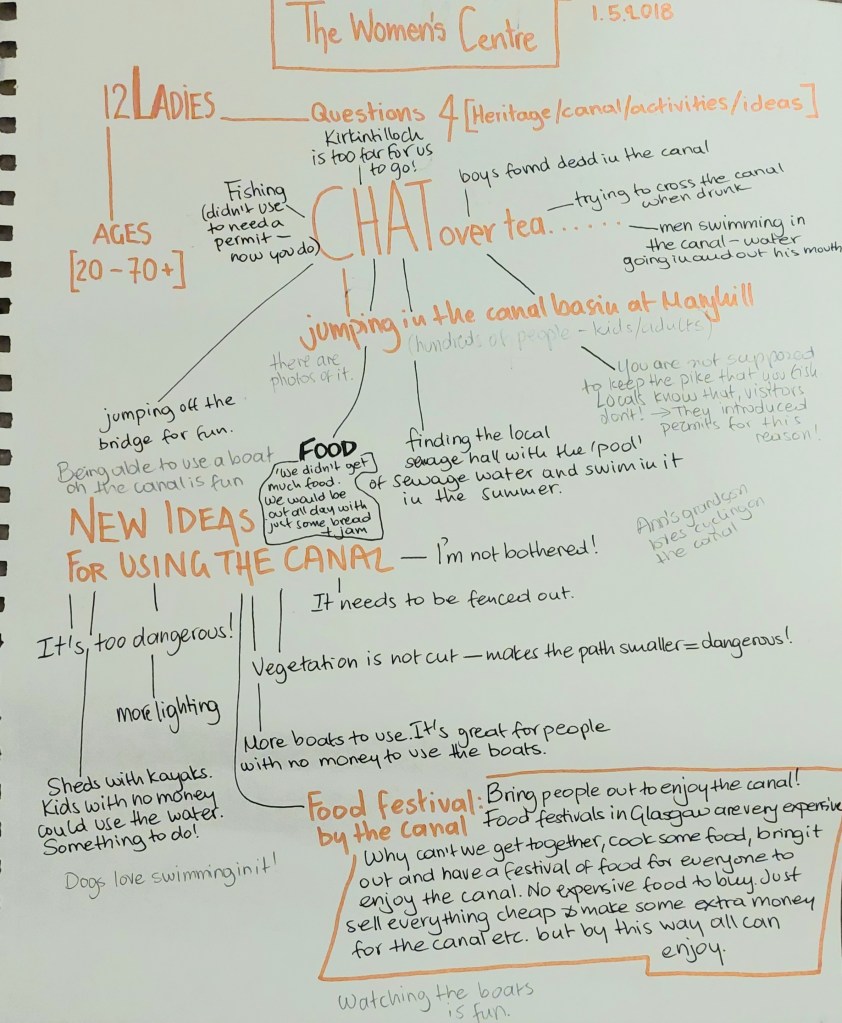 The Women's Centre
1.5.2018
12 LADIES
Questions 4 [Heritage/canal/activities/ideas]
AGES
[20-70+]
Kirkintilloch
is too far for us
to go!
Fishing
(didn't use
to need a
permit -
now you do)
CHAT over tea.......
boys found dead in the canal
trying to cross the canal
when drunk
men swimming in
the canal - water
going in and out his mouth
jumping in the canal basin at Maryhill
(hundreds of people - kids/adults)
there are
photos of it.
You are not supposed
to keep the pike that you fish
Locals know that, visitors
don't! → They introduced
permits for this
reason!
jumping off the
bridge for fun.
Being able to use a boat
on the canal is fun
FOOD
"We didn't get
much food.
We would be
out all day with
just some bread
+ jam
finding the local
sewage hall with the 'pool'
of sewage water and swim in it
in the summer.
Ann's grandson
loves cycling on
the canal
NEW IDEAS
FOR USING THE CANAL
I'm not bothered!
It needs to be fenced out.
It's too dangerous!
more lighting
Vegetation is not cut - makes the path smaller = dangerous!
More boats to use. It's great for people
with no money to use the boats.
Sheds with kayaks.
Kids with no money
could use the water.
Something to do!
Dogs love swimming in it!
Food festival:
by the canal
Bring people out to enjoy the canal!
Food festivals in Glasgow are very expensive
Why can't we get together, cook some food, bring it
out and have a festival of food for everyone to
enjoy the canal. No expensive food to buy. Just
sell everything cheap & make some extra money
for the canal etc. but by this way all can
enjoy.
Watching the boats
is fun.